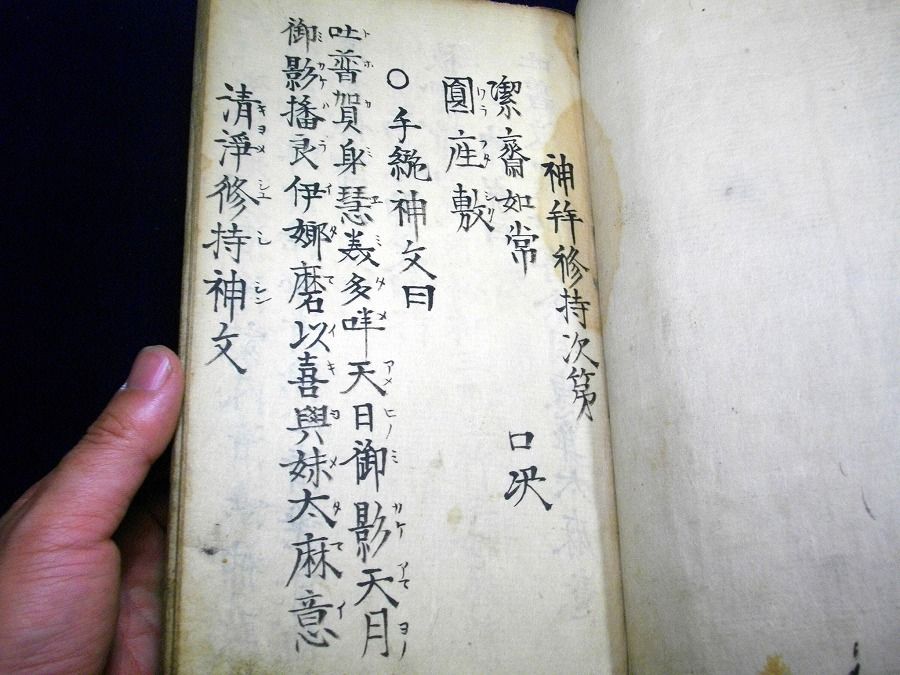 神拝修持次第
潔齋如常 口决
圓座敷
○手繦神文曰
吐普賀身慧美多咩天日御影天月
御影播良伊娜磨以喜與妹太麻意
清淨修持神文